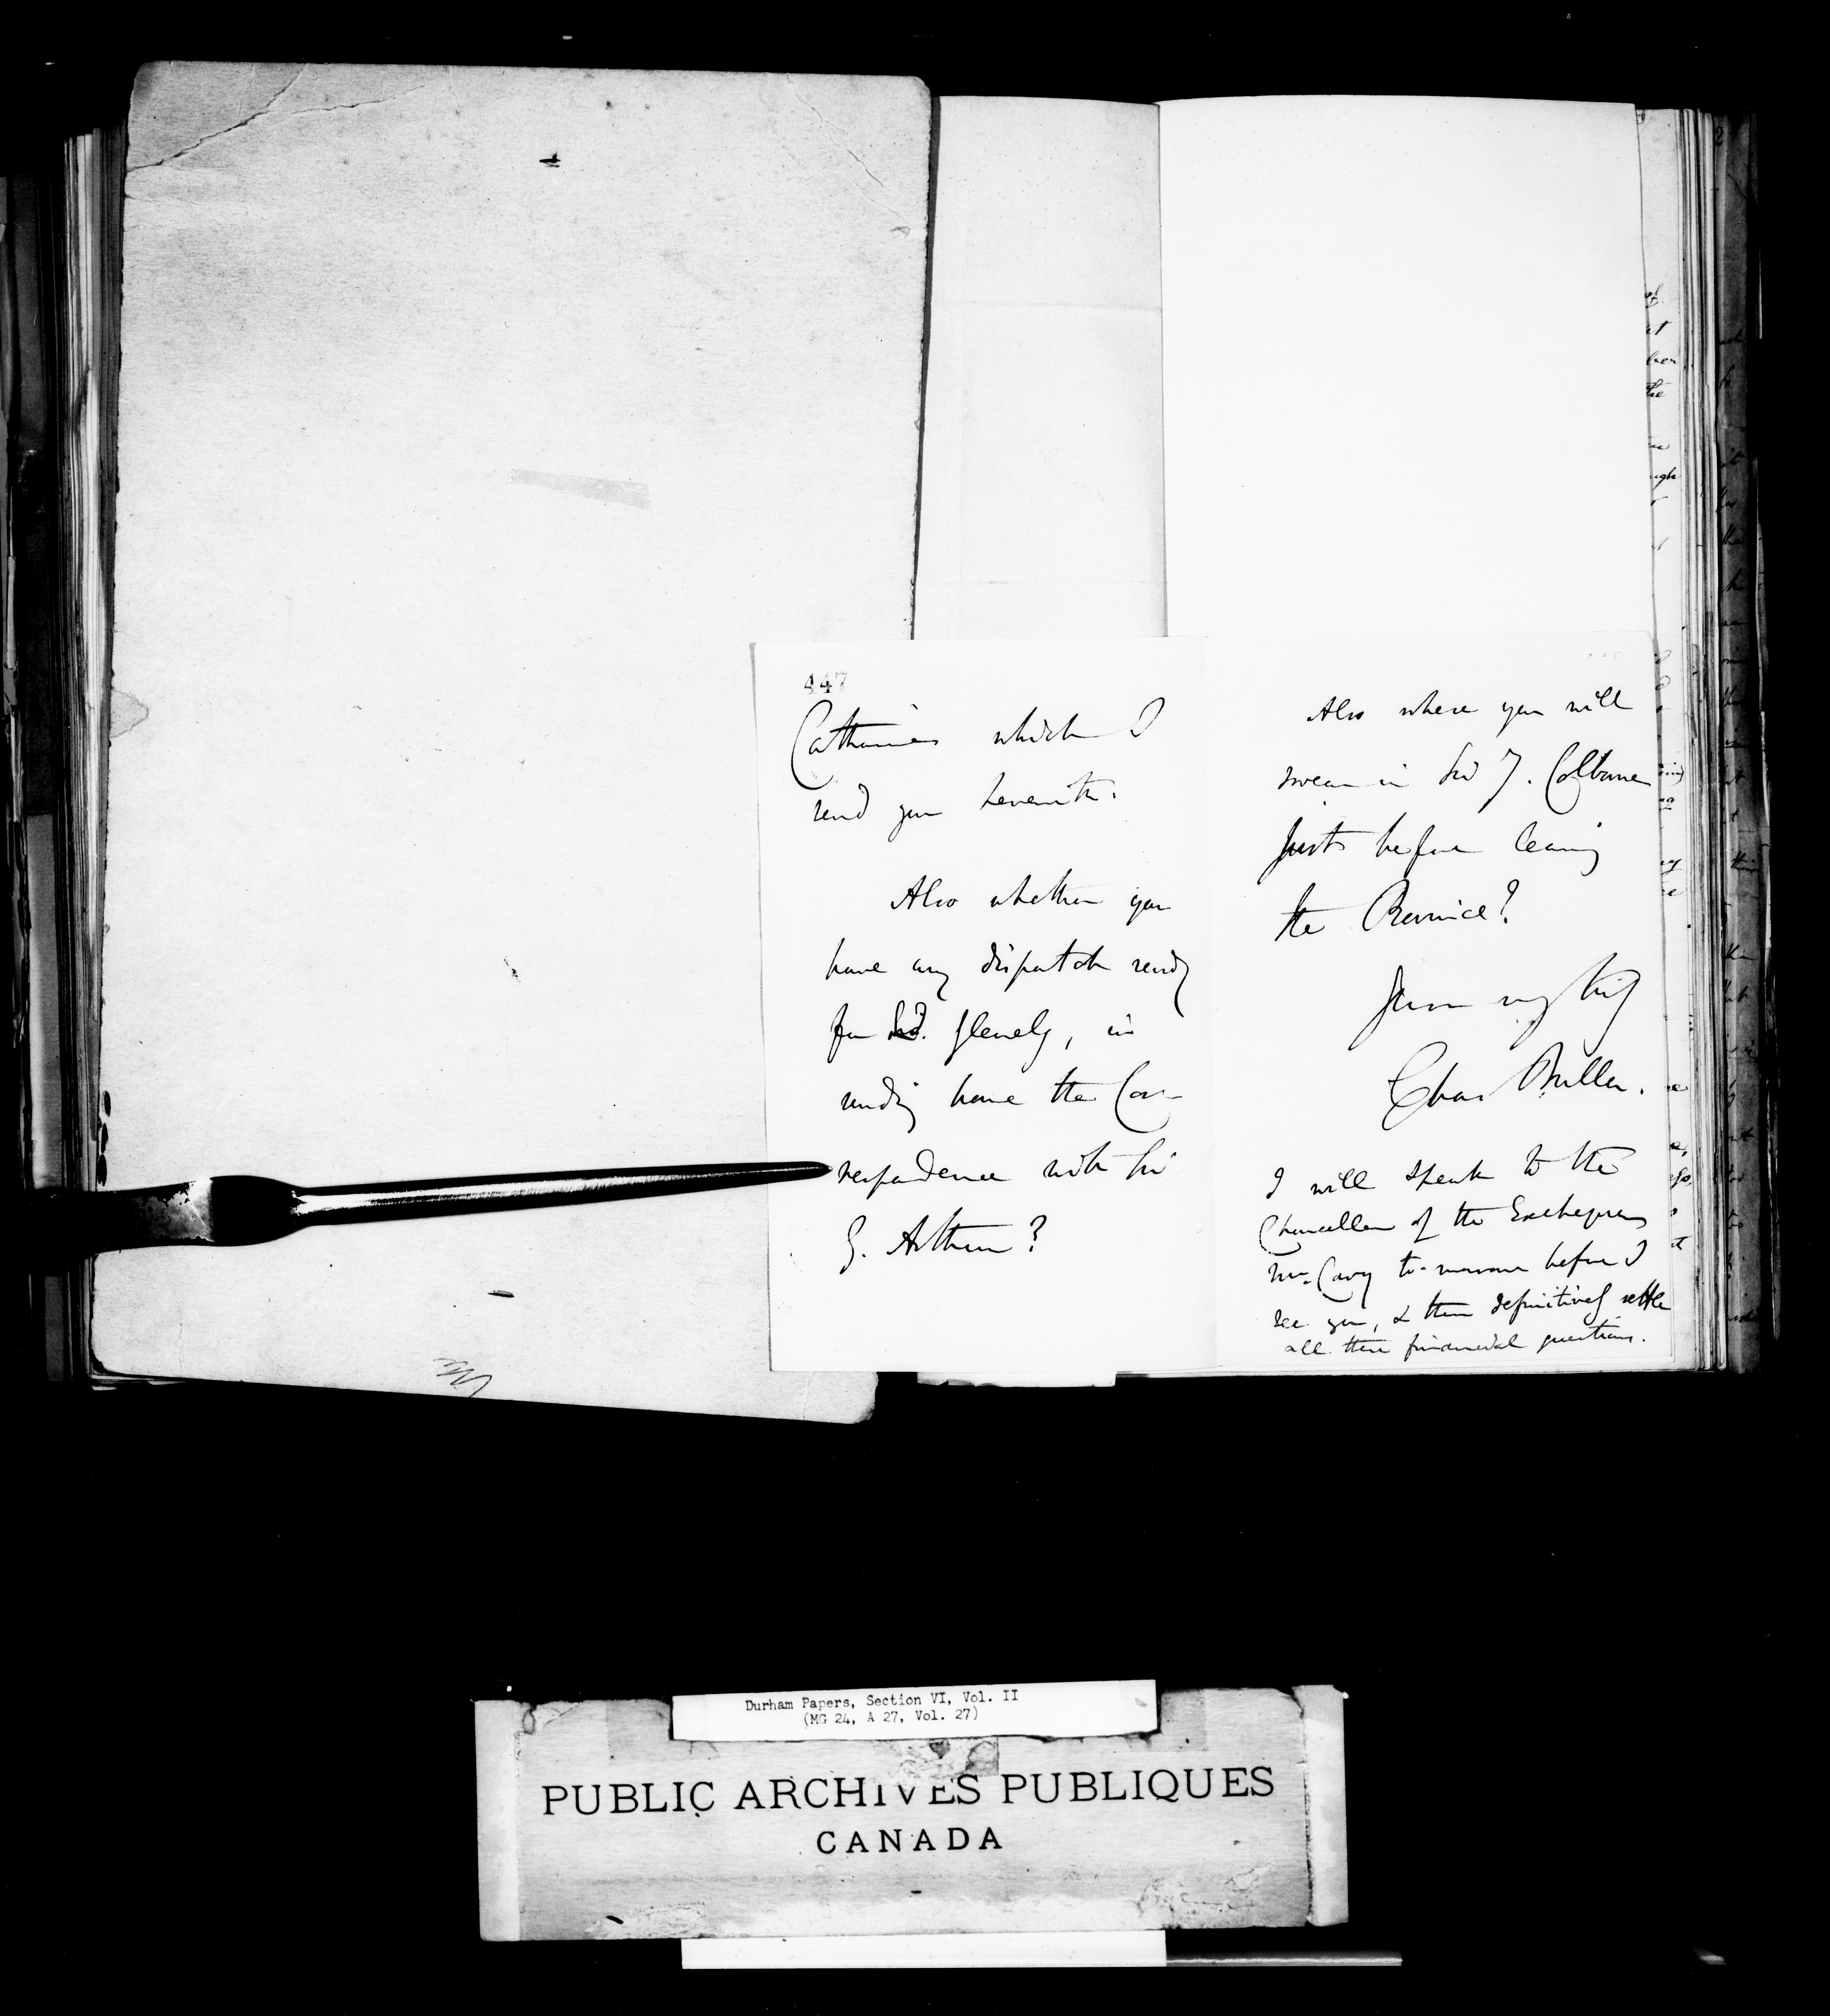 447
Catharines which I
send you herewith.
Also whether you
have any dispatch ready
for Ld. Glenelg, in
sending home the Cor-
respondence with Sir
G. Arthur?
Also where you will
swear in Sir J. Colborne
just before leaving
the Province?
Yours very truly
Chas Buller.
I will speak to the
Chancellor of the Exchequer
Mr. Cary to-morrow before I
see you, & then definitively settle
all these financial questions.
Durham Papers, Section VI, Vol. II
(MG 24, A 27, Vol. 27)
PUBLIC ARCHIVES PUBLIQUES
CANADA